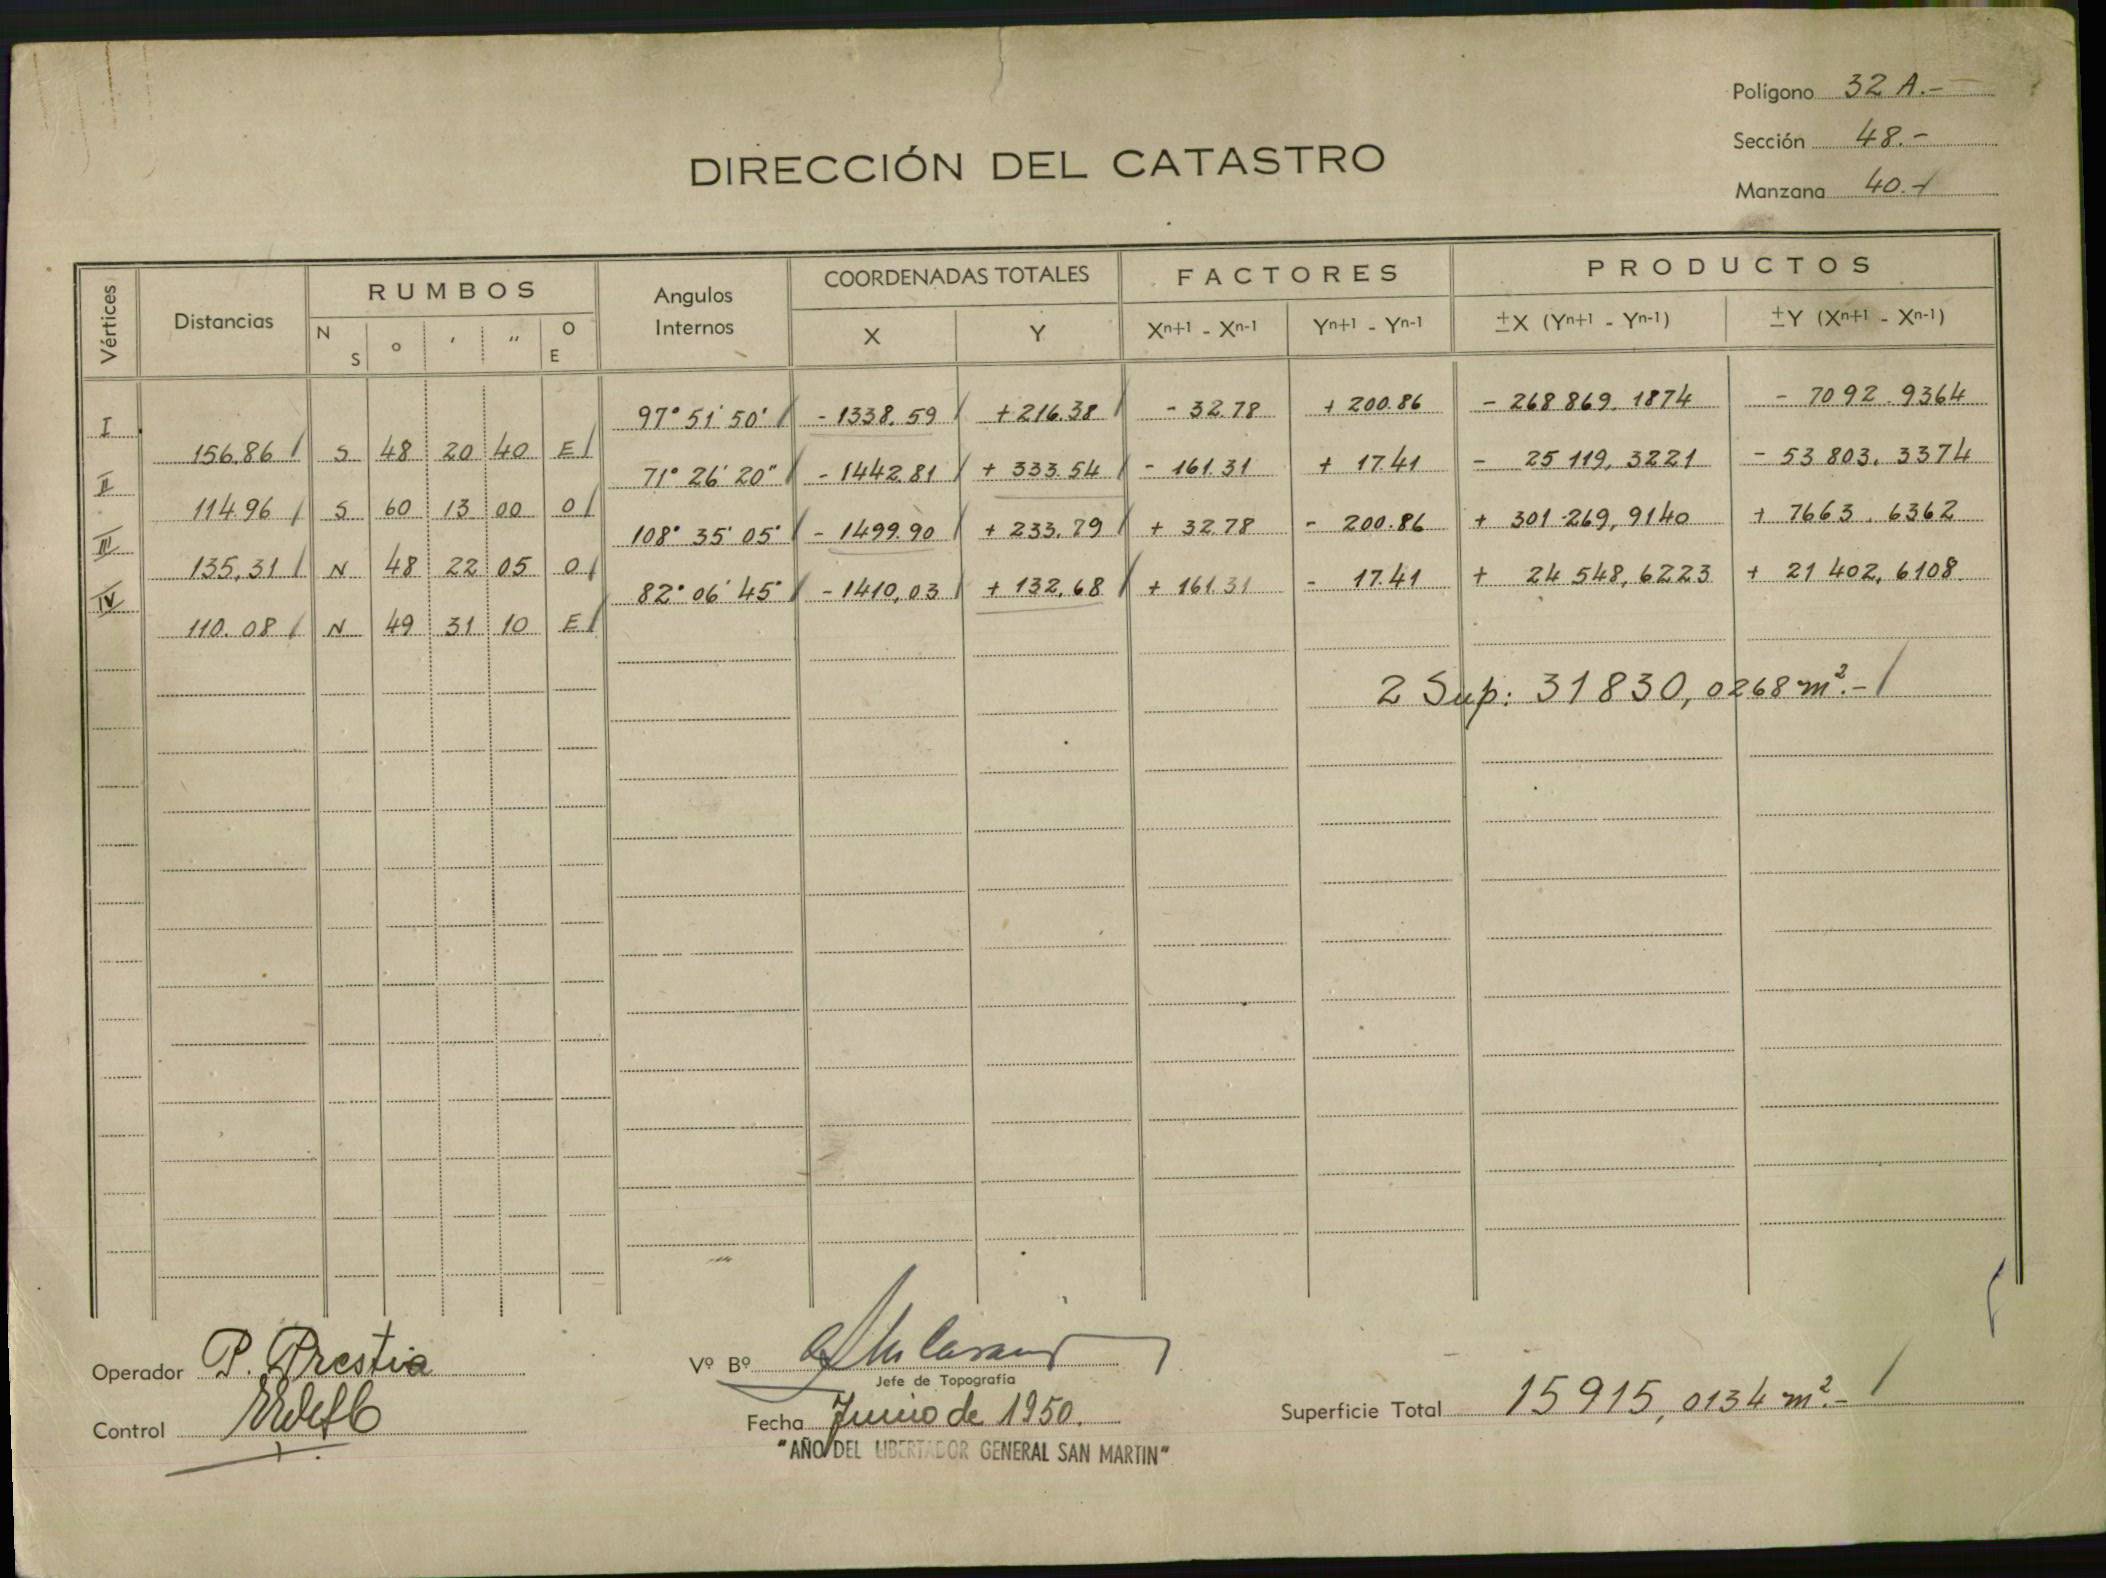 Polígono 32 A.-
Sección 48.-
Manzana 40.-
DIRECCIÓN DEL CATASTRO
Vértices Distancias RUMBOS Angulos Internos COORDENADAS TOTALES FACTORES PRODUCTOS
N S ° ′ ″ O E X Y Xn+1 - Xn-1 Yn+1 - Yn-1 ±X (Yn+1 - Yn-1) ±Y (Xn+1 - Xn-1)
I 97° 51' 50" - 1338.59 + 216.38 - 32.78 + 200.86 - 268 869.1874 - 7092.9364
156.86 S 48 20 40 E
II 71° 26' 20" - 1442.81 + 333.54 - 161.31 + 17.41 - 25 119,3221 - 53 803.3374
114.96 S 60 13 00 O
III 108° 35' 05" - 1499.90 + 233.79 + 32.78 - 200.86 + 301 269,9140 + 7663.6362
135,31 N 48 22 05 O
IV 82° 06' 45" - 1410,03 + 132.68 + 161.31 - 17.41 + 24 548,6223 + 21 402,6108
110.08 N 49 31 10 E
2 Sup: 31830,0268 m².-
Operador P. Prestia
Vº Bº
Jefe de Topografía
Control
Fecha Junio de 1950.
Superficie Total 15915,0134 m².-
"AÑO DEL LIBERTADOR GENERAL SAN MARTIN"